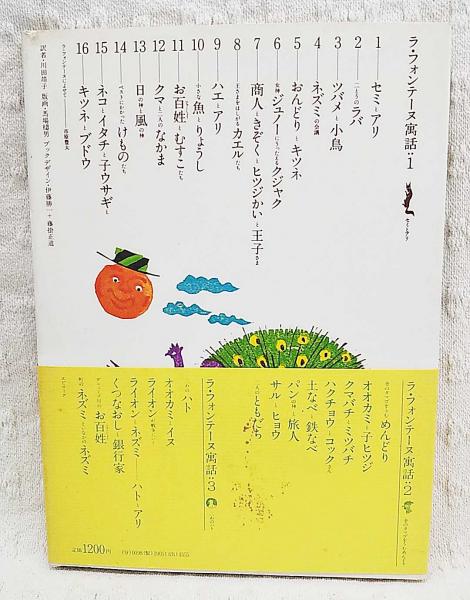 ラ・フォンテーヌ寓話・1
セミとアリ
1──セミとアリ
2──二とうのラバ
3──ツバメと小鳥
4──ネズミの会議
5──おんどりとキツネ
6──女神ジュノーにうったえるクジャク
7──商人ときぞくとヒツジかいと王子さま
8──王さまをほしがるカエルたち
9──ハエとアリ
10──小さな魚とりょうし
11──お百姓とむすこたち
12──クマと二人のなかま
13──日の神と風の神
14──ペストにかかったけものたち
15──ネコとイタチと子ウサギと
16──キツネとブドウ
ラ・フォンテーヌによせて──市原豊太
訳者・川田靖子 版画・馬場檮男 ブックデザイン・伊藤勝一+藤掛正道
ラ・フォンテーヌ寓話・2
金のタマゴをうむめんどり
オオカミと子ヒツジ
クマバチとミツバチ
ハクチョウとコックさん
土なべと鉄なべ
パンの神と旅人
サルとヒョウ
二人のともだち
ラ・フォンテーヌ寓話・3
二わのハト
二わのハト
オオカミとイヌ
ライオンの戦争じたく
ライオンとネズミ──ハトとアリ
くつなおしと銀行家
お百姓
町のネズミといなかのネズミ
エピローグ
定価1200円